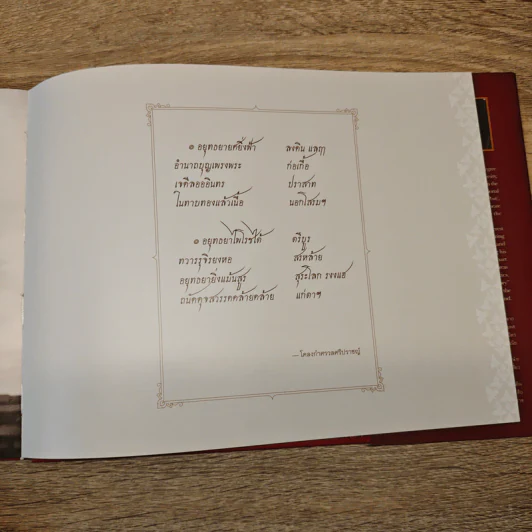 ๏ อยุทธยายศยิ่งฟ้า ลงดิน แลฤๅ
อำนาถบุญเพรงพระ ก่อเกื้อ
เจดีลอออินทร ปราสาท
ในทาบทองแล้วเนื้อ นอกโสรมฯ
๏ อยุทธยาไพโรชใต้ ตรีบูร
ทวารรุจิรยงหอ สรหล้าย
อยุทธยายิ่งแมนสูร สุระโลก รงงแฮ
ถนัดดุจสวรรคคล้ายคล้าย แก่ตาฯ
— โคลงกำศรวลศรีปราชญ์